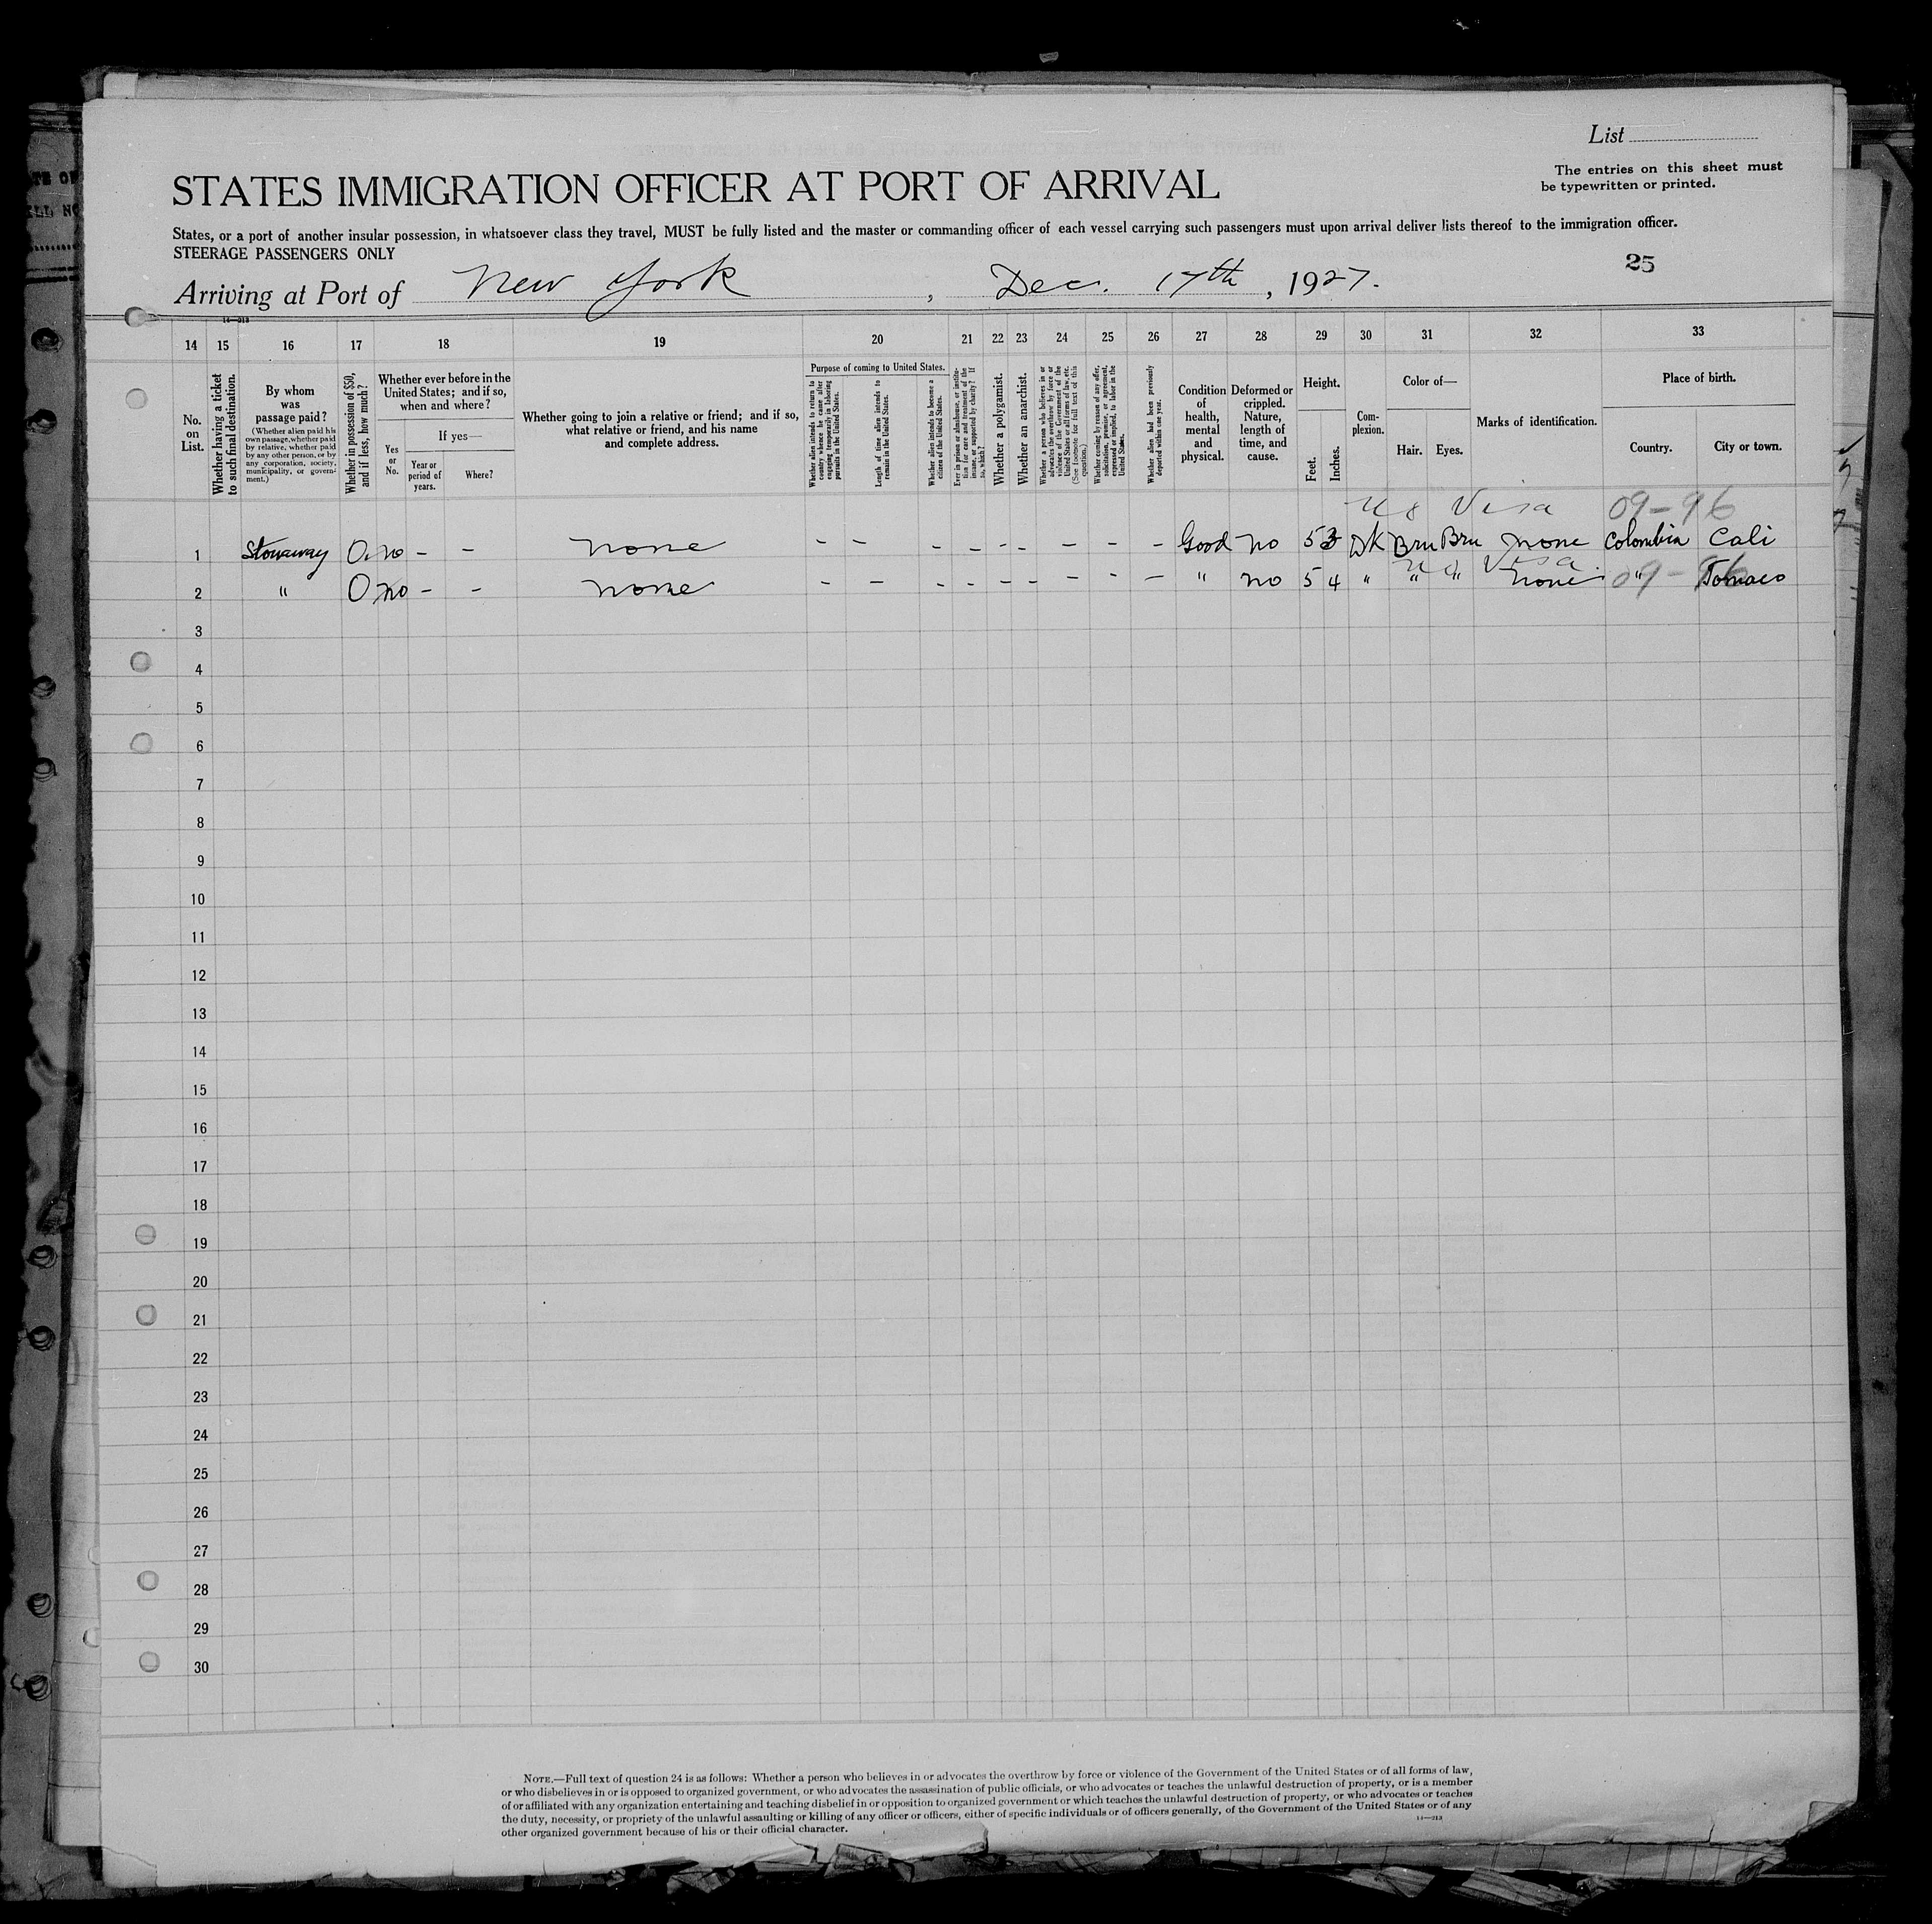 List
The entries on this sheet must
be typewritten or printed.
STATES IMMIGRATION OFFICER AT PORT OF ARRIVAL
States, or a port of another insular possession, in whatsoever class they travel, MUST be fully listed and the master or commanding officer of each vessel carrying such passengers must upon arrival deliver lists thereof to the immigration officer.
STEERAGE PASSENGERS ONLY
25
Arriving at Port of New York, Dec. 17th, 1927.
14—213
14 15 16 17 18 19 20 21 22 23 24 25 26 27 28 29 30 31 32 33
No. on List.
Whether having a ticket to such final destination.
By whom was passage paid?
(Whether alien paid his own passage, whether paid by relative, whether paid by any other person, or by any corporation, society, municipality, or government.)
Whether in possession of $50, and if less, how much?
Whether ever before in the United States; and if so, when and where?
Yes or No.
If yes—
Year or period of years.
Where?
Whether going to join a relative or friend; and if so, what relative or friend, and his name and complete address.
Purpose of coming to United States.
Whether alien intends to return to country whence he came after engaging temporarily in laboring pursuits in the United States.
Length of time alien intends to remain in the United States.
Whether alien intends to become a citizen of the United States.
Ever in prison or almshouse, or institution for care and treatment of the insane, or supported by charity? If so, which?
Whether a polygamist.
Whether an anarchist.
Whether a person who believes in or advocates the overthrow by force or violence of the Government of the United States or all forms of law, etc. (See footnote for full text of this question.)
Whether coming by reason of any offer, solicitation, promise, or agreement, expressed or implied, to labor in the United States.
Whether alien had been previously deported within one year.
Condition of health, mental and physical.
Deformed or crippled. Nature, length of time, and cause.
Height.
Feet.
Inches.
Complexion.
Color of—
Hair.
Eyes.
Marks of identification.
Place of birth.
Country.
City or town.
US Visa 09-96
1 Stowaway 0. no - - none - - - - - - - - - Good no 5 3 DK Bru Bru none Colombia Cali
US Visa 09-96
2 " 0 no - - none - - - - - - - - - " no 5 4 " " " none " Tomaco
3
4
5
6
7
8
9
10
11
12
13
14
15
16
17
18
19
20
21
22
23
24
25
26
27
28
29
30
NOTE.—Full text of question 24 is as follows: Whether a person who believes in or advocates the overthrow by force or violence of the Government of the United States or of all forms of law,
or who disbelieves in or is opposed to organized government, or who advocates the assassination of public officials, or who advocates or teaches the unlawful destruction of property, or is a member
of or affiliated with any organization entertaining and teaching disbelief in or opposition to organized government or which teaches the unlawful destruction of property, or who advocates or teaches
the duty, necessity, or propriety of the unlawful assaulting or killing of any officer or officers, either of specific individuals or of officers generally, of the Government of the United States or of any
other organized government because of his or their official character.
14—213